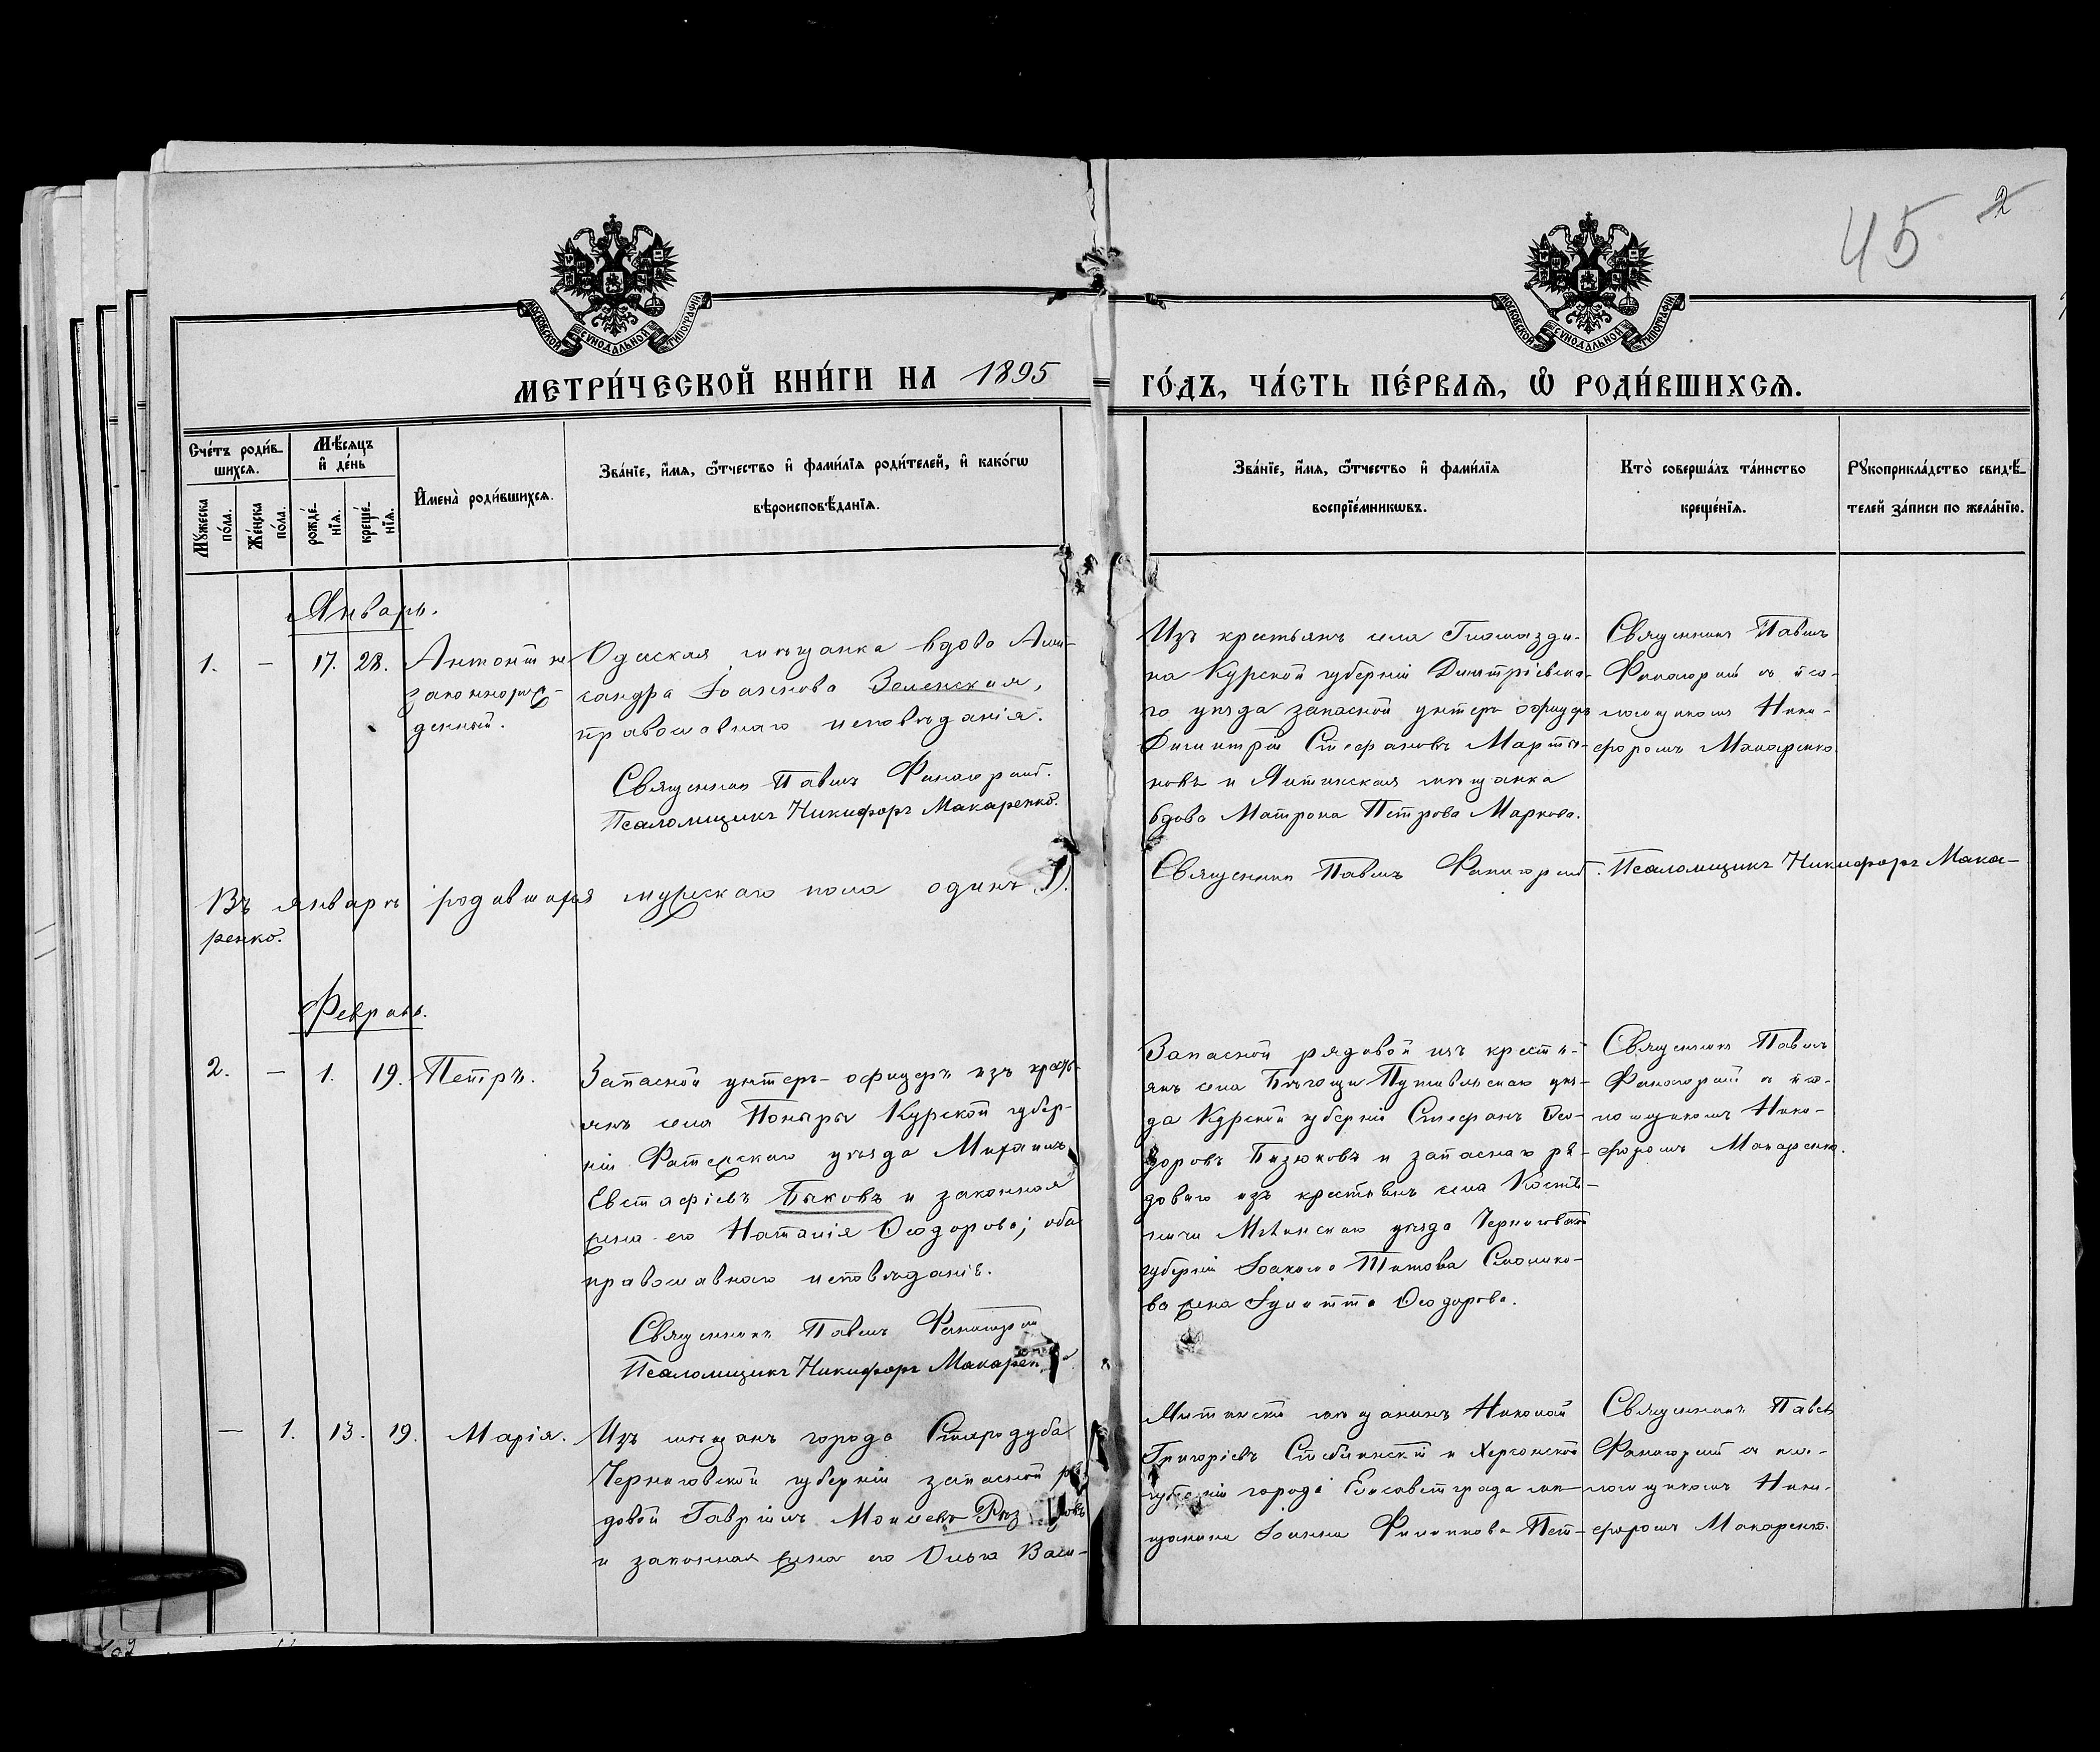 45 2
МОСКОВСКОЙ СѴНОДАЛЬНОЙ ТИПОГРАФІИ
МОСКОВСКОЙ СѴНОДАЛЬНОЙ ТИПОГРАФІИ
МЕТРИ́ЧЕСКОЙ КНИ́ГИ НА 1895 ГО́ДЪ, ЧА́СТЬ ПЕ́РВАѦ, Ѡ҆ РОДИ́ВШИХСѦ.
Сче́тъ роди́в-
шихсѧ.
Мꙋ́жеска по́ла.
Же́нска по́ла.
Мѣ́сѧцъ и҆ де́нь
рожде́-нїѧ.
креще́-нїѧ.
И҆мена̀ роди́вшихсѧ.
Зва́нїе, и҆́мѧ, ѻ҆́тчество и҆ фами́лїѧ роди́телей, и҆ како́гѡ
вѣроисповѣ́данїѧ.
Зва́нїе, и҆́мѧ, ѻ҆́тчество и҆ фами́лїѧ
воспрїе́мникѡвъ.
Кто̀ соверша́лъ та́инство
креще́нїѧ.
Рꙋкоприкла́дство свидѣ́-
телей за́писи по жела́нїю.
Январь.
1. — 17. 28. Антоній не
законнорож-
денный.
Одесская мѣщанка вдова Алек-
сандра Іоаннова Зеленская,
православнаго исповѣданія.
Священникъ Павелъ
Псаломщикъ Никифоръ Макаренко.
Изъ крестьянъ села
на Курской губерніи Димитріевска-
го уѣзда запасной унтеръ офицеръ
Димитрій Стефановъ Марты-
новъ и Ялтинская мѣщанка
вдова Матрона Петрова Маркова.
Священникъ Павелъ
съ пса-
ломщикомъ Ники-
форомъ Макаренко
Въ январѣ родившихся мужскаго пола одинъ (1). Священникъ Павелъ Псаломщикъ Никифоръ Мака-
ренко.
Февраль.
2. — 1. 19. Петръ.
Запасной унтеръ-офицеръ изъ кресть-
янъ села Поныры Курской губер-
ніи Фатежскаго уѣзда Михаилъ
Евстафіевъ Быковъ и законная
жена его Наталія Ѳеодорова; оба
православнаго исповѣданія.
Священникъ Павелъ
Псаломщикъ Никифоръ Макарен
Запасной рядовой изъ кресть-
янъ села Путивльскаго уѣз-
да Курской губерніи Стефанъ Ѳео-
доровъ Бизюковъ и запаснаго ря-
доваго изъ крестьянъ села Косте-
ничи Мглинскаго уѣзда Черниговской
губерніи Титова
ва жена Ѳеодорова.
Священникъ Павелъ
съ пса-
ломщикомъ Ники-
форомъ Макаренко.
— 1. 13. 19. Марія.
Изъ мѣщанъ города Стародуба
Черниговской губерніи запасной ря-
довой Гавріилъ
и законная жена его Ольга Васи-
Ялтинскій мѣщанинъ Николай
Григоріевъ и Херсонской
губерніи города Елисаветграда мѣ-
щанина Іоанна Филиппова Пет-
Священникъ Павелъ
съ пса-
ломщикомъ Ники-
форомъ Макаренко.